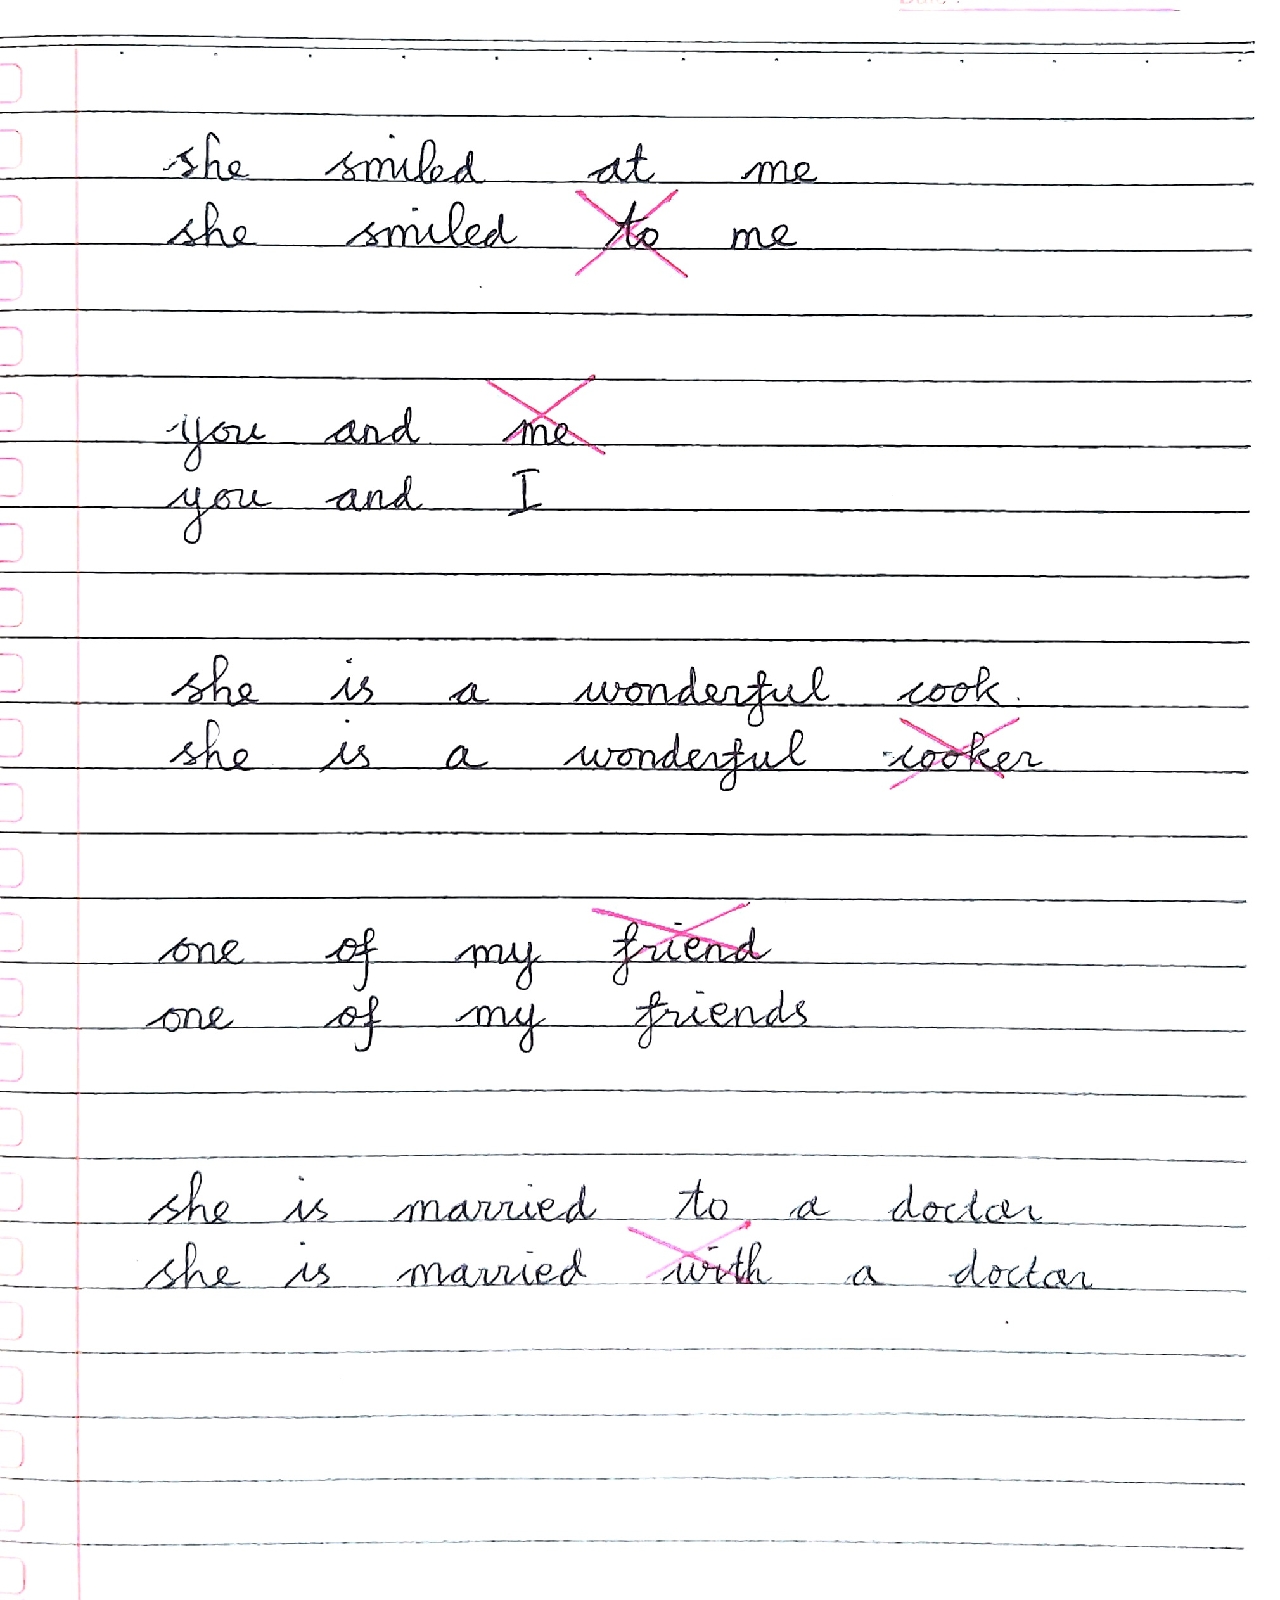 she smiled at me
she smiled to me
you and me
you and I
she is a wonderful cook.
she is a wonderful cooker
one of my friend
one of my friends
she is married to a doctor
she is married with a doctor